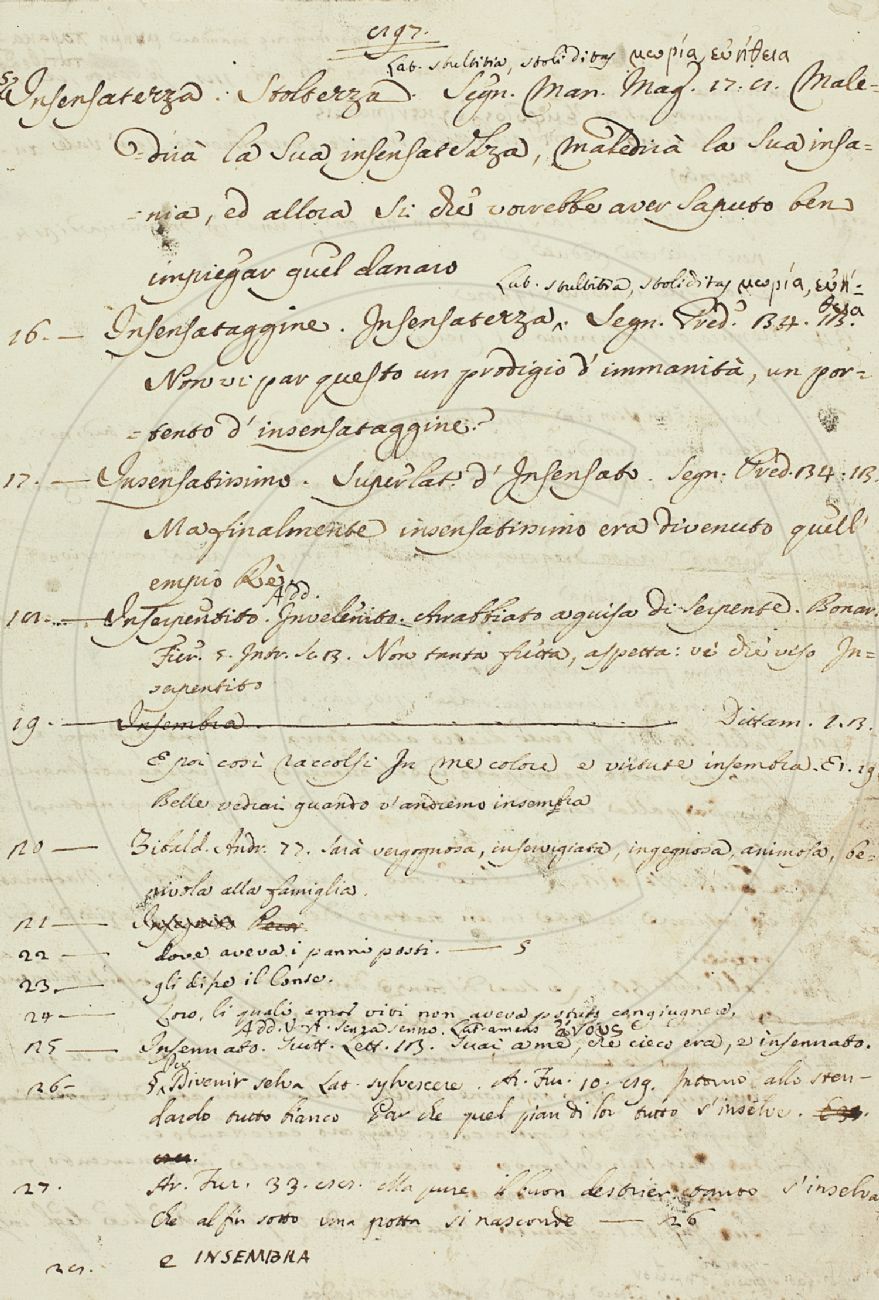 897.
Lat. stultitia, stoliditas μωρία, εὐήθεια
§ Insensatezza. Stoltezza. Segn. Man. Mag. 17. 8. Male=
=dirà la sua insensatezza, maledirà la sua insa=
=nia, ed allora sì che vorrebbe aver saputo ben
impiegar quel danaro
Lat. stultitia, stoliditas μωρία, εὐή-
θεια
16. — Insensataggine. Insensatezza. Segn. Pred. 134. 113.
Non vi par questo un prodigio d'immanità, un por=
=tento d'insensataggine?
17. — Insensatissimo. Superlat. d'Insensato. Segn. Pred. 134. 113.
Ma finalmente insensatissimo era divenuto quell'
empio Rè.
Add.
18. — Inserpentito. Invelenito. Arrabbiato a guisa di serpente. Bonar.
Fier. 5. Intr. Sc. 3. Non tanta fretta, aspetta: ve' che viso In=
serpentito
19. — Insembra. Dittam. 1. 13.
E poi così raccolsi In me colore e virtute insembra. Et. 19
Belle vedrai quando v'andremo insembra
20 — Zibald. Andr. 77. Sarà vergognosa, inservigiata, ingegnosa, animosa, be=
nivola alla famiglia.
21 —
22 — dove aveva i panni posti. — 5
23. — gli disse il Conse.
24 — Loro, li quali amor vivi non aveva potuto congiugnere,
Add. V. A. Senza senno. Lat. amens ἄνους
25 — Insennato. Guitt. Lett. 113. Guai a me, che cieco era, e insennato.
Per
26 - § Divenir selva Lat. sylvescere. Ar. Fur. 10. 89. Intorno allo sten-
dardo tutto bianco Par che quel pian di lor tutto s'inselve.
27. Ar. Fur. 33. 88. Ma pure il buon destrier tanto s'inselva
Che al fin sotto una grotta si nasconde — 26
28. e INSEMBRA